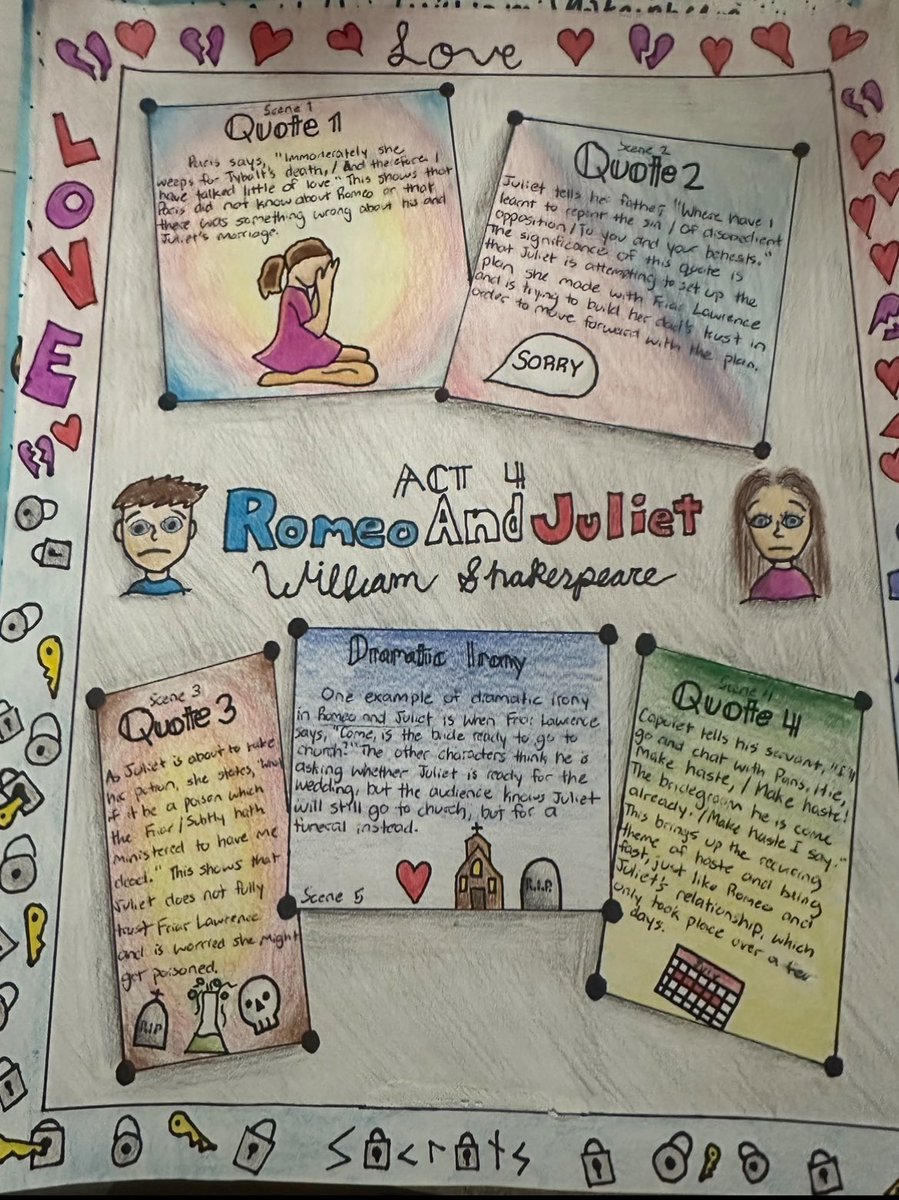 Love
LOVE
Scene 1
Quote 1
Paris says, "Immoderately she
weeps for Tybalt's death, / And therefore I
have talked little of love." This shows that
Paris did not know about Romeo or that
there was something wrong about his and
Juliet's marriage.
Scene 2
Quote 2
Juliet tells her father, "Where have I
learnt to repent the sin / Of disobedient
opposition / To you and your behests."
The significance of this quote is
that Juliet is attempting to set up the
plan she made with Friar Lawrence
and is trying to build her dad's trust in
order to move forward with the plan.
SORRY
ACT 4
Romeo And Juliet
William Shakespeare
Scene 3
Quote 3
As Juliet is about to take
his potion, she states, "What
if it be a poison which
the Friar / Subtly hath
ministered to have me
dead." This shows that
Juliet does not fully
trust Friar Lawrence
and is worried she might
get poisoned.
R.I.P
Dramatic Irony
One example of dramatic irony
in Romeo and Juliet is when Friar Lawrence
says, "Come, is the bride ready to go to
church?" The other characters think he is
asking whether Juliet is ready for the
wedding, but the audience knows Juliet
will still go to church, but for a
funeral instead.
Scene 5
R.I.P
Scene 4
Quote 4
Capulet tells his servant, "I'll
go and chat with Paris, Hie,
make haste, / Make haste!
The bridegroom he is come
already. / Make haste I say."
This brings up the recurring
theme of haste and being
fast, just like Romeo and
Juliet's relationship, which
only took place over a few
days.
Secrets